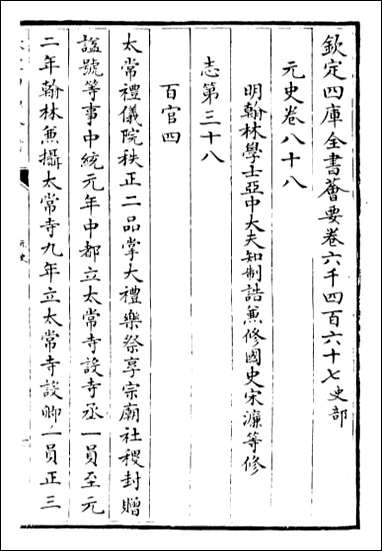 欽定四庫全書薈要卷六千四百六十七史部
元史卷八十八
明翰林學士亞中大夫知制誥兼修國史宋濂等修
志第三十八
百官四
太常禮儀院秩正二品掌大禮樂祭享宗廟社稷封贈
諡號等事中統元年中都立太常寺設寺丞一員至元
二年翰林兼攝太常寺九年立太常寺設卿一員正三
元史